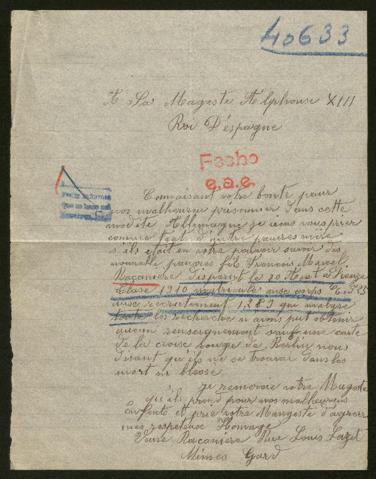 40633
A Sa Magesté Alphonse XIII
Roi D'espagne
Fecho
e.a.e.
Connaisant votre bonté pour
nos malheureux prisonnier dans cette
modite Allemagne je viens vous prier
comme tant d'autre pauvres mère
s'ils était en votre pouvoir avoir des
nouvelle pauvres fils François Marcel
Racanière disparut le 20 Aout a
Classe 1910 matricule au corps
recrutement 1389 que malgré
toute les recherche ai pu obtenir
aucun renseignement sauf une carte
de la croise Rouge de Berlin nous
disant qu'ils ne ce trouve dans les
mort ni blaisé
je remercie votre Magesté
qu'ils prend pour nos malheureux
Enfants et prie votre Mangesté d'agréer
mes respetence Hommage
Veuve Racaniere Rue Louis
Nimes Gard